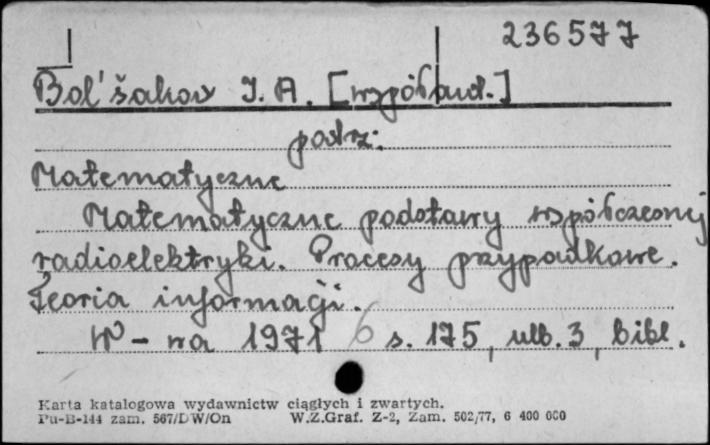 236577
Bol'šakov I. A. [współaut.]
patrz:
Matematyczne
Matematyczne podstawy współczesnej
radioelektryki. Procesy przypadkowe.
Teoria informacji.
W-wa 1971 6 s. 175, ulb. 3, bibl.
Karta katalogowa wydawnictw ciągłych i zwartych.
Pu-B-144 zam. 567/DW/On W.Z.Graf. Z-2, Zam. 502/77, 6 400 000